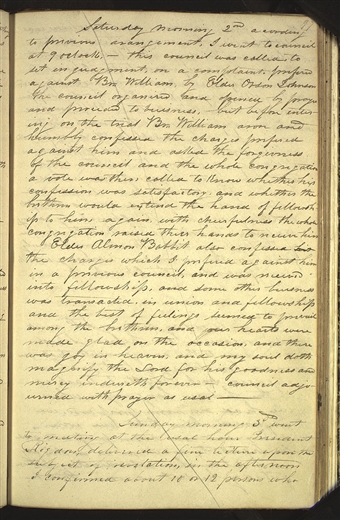 Saturday morning 2nd according
to previous arangement, I went to council
at 9 oclock — this council was called to
set in judgment, on a complaint, prefered
against Br. William, by Elder Orson Johnson
the council organized and opened by prayer
and proceded to buisness, — but before enter-
ing on the trial Br. William arose and
humbly confessed the charges prefered
against him and asked the forgiveness
of the council and the whole congregation
a vote was then called to know whether his
confession was satisfactory, and whether the
brethren would extend the hand of fellowsh
ip to him again, with cheerfulness the whole
congregation raised their hands to receive him
Elder Almon Babbit also confessed his
the charges which I prefered against him
in a previous council, and was received
into fellowship, and some other buisness
was transacted, in union and fellowship
and the best of feelings seemed to prevail
among the brethren, and our hearts were
made glad on the occasion, and there
was joy in heaven, and my soul doth
magnify the Lord for his goodness and
mercy endureth forever — council adjo
urned with prayer as usual —
Sunday morning 3rd went
to meeting at the usual hour President
Rigdon, delivered a fine lecture upon the
subject of revelation, in the afternoon
I confirmed about 10 or 12 persons who